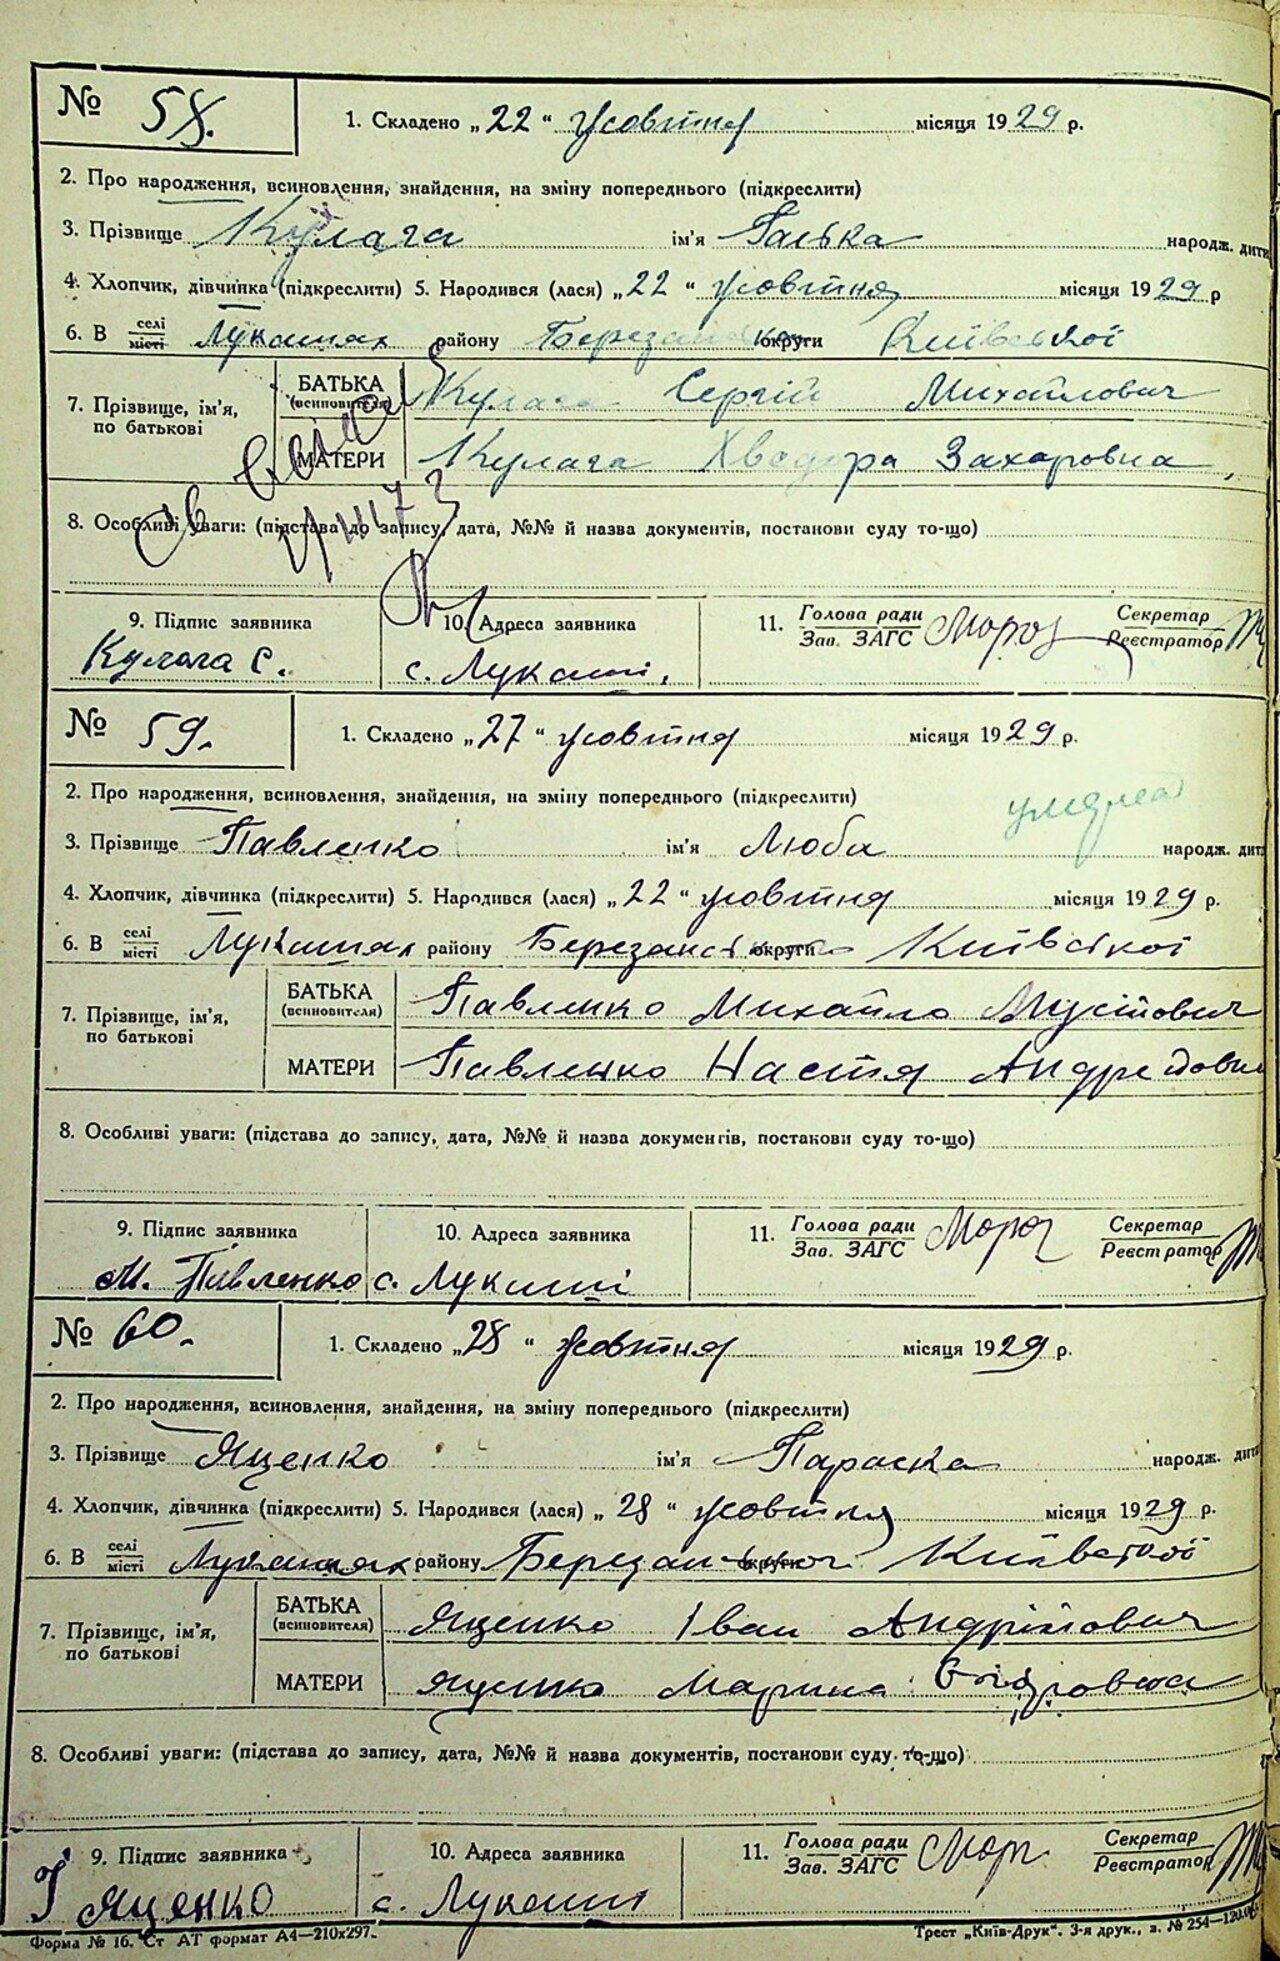 № 58. 1. Складено „22“ жовтня місяця 1929 р.
2. Про народження, всиновлення, знайдення, на зміну попереднього (підкреслити)
3. Прізвище Кулага ім'я Галька народж. дити
4. Хлопчик, дівчинка (підкреслити) 5. Народився (лася) „22“ жовтня місяця 1929 р
6. В селі місті Лукашах району Березанської округи Київської
7. Прізвище, ім'я, по батькові
БАТЬКА (всиновителя) Кулага Сергій Михайлович
МАТЕРИ Кулага Хведора Захаровна
8. Особливі уваги: (підстава до запису, дата, №№ й назва документів, постанови суду то-що)
9. Підпис заявника 10. Адреса заявника 11. Голова ради Зав. ЗАГС Мороз Секретар Реєстратор
Кулага С. с. Лукаші.
№ 59. 1. Складено „27“ жовтня місяця 1929 р.
2. Про народження, всиновлення, знайдення, на зміну попереднього (підкреслити)
3. Прізвище Павленко ім'я Люба народж. дит
4. Хлопчик, дівчинка (підкреслити) 5. Народився (лася) „22“ жовтня місяця 1929 р.
6. В селі місті Лукашах району Березанської округи Київської
7. Прізвище, ім'я, по батькові
БАТЬКА (всиновителя) Павленко Михайло
МАТЕРИ Павленко Настя
8. Особливі уваги: (підстава до запису, дата, №№ й назва документів, постанови суду то-що)
9. Підпис заявника 10. Адреса заявника 11. Голова ради Зав. ЗАГС Мороз Секретар Реєстратор
М. Павленко с. Лукаші
№ 60. 1. Складено „28“ жовтня місяця 1929 р.
2. Про народження, всиновлення, знайдення, на зміну попереднього (підкреслити)
3. Прізвище Яценко ім'я Параска народж. дити
4. Хлопчик, дівчинка (підкреслити) 5. Народився (лася) „28“ жовтня місяця 1929 р.
6. В селі місті Лукашах району Березанської округи Київської
7. Прізвище, ім'я, по батькові
БАТЬКА (всиновителя) Яценко Іван Андрійович
МАТЕРИ Яценко Марина
8. Особливі уваги: (підстава до запису, дата, №№ й назва документів, постанови суду то-що)
9. Підпис заявника 10. Адреса заявника 11. Голова ради Зав. ЗАГС Мороз Секретар Реєстратор
І Яценко с. Лукаші
Форма № 16. Ст АТ формат А4—210х297. Трест „Київ-Друк“. 3-я друк., з. № 254—120.000